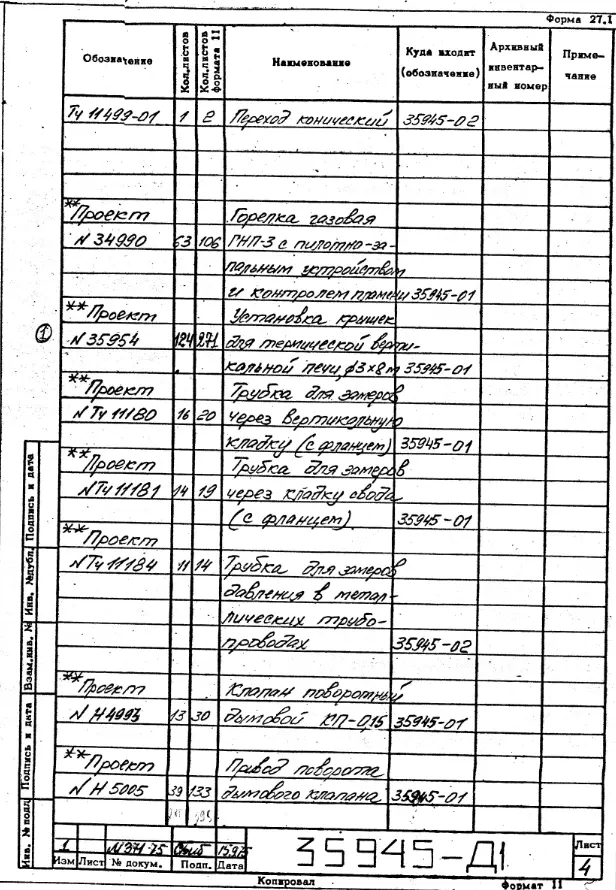 Форма 27.1
Обозначение Кол.листов Кол.листов формата 11 Наименование Куда входит (обозначение) Архивный инвентар-ный номер Приме-чание
Ту 11499-01 1 2 Переход конический 35945-02
**Проект Горелка газовая
N 34990 63 106 ГНП-3 с пилотно-за-
пальным устройством
и контролем пламени 35945-01
**Проект Установка крышек
① N 35954 124 271 для термической верти-
кальной печи, ϕ3х8м 35945-01
**Проект Трубка для замеров
N Ту 11180 16 20 через вертикальную
кладку (с фланцем) 35945-01
**Проект Трубка для замеров
N Ту 11181 14 19 через кладку свода
(с фланцем) 35945-01
**Проект
N Ту 11184 11 14 Трубка для замеров
давления в метал-
лических трубо-
проводах 35945-02
**Проект Клапан поворотный
N Н4993 13 30 дымовой КП-0,15 35945-01
**Проект Привод поворота
N Н 5005 39 133 дымового клапана 35945-01
Подпись и дата
Инв. №дубл.
Взам.инв. №
Подпись и дата
Инв. №подл
1
Изм Лист № докум. Подп. Дата
35945-Д1
Лист
4
Копировал Формат 11